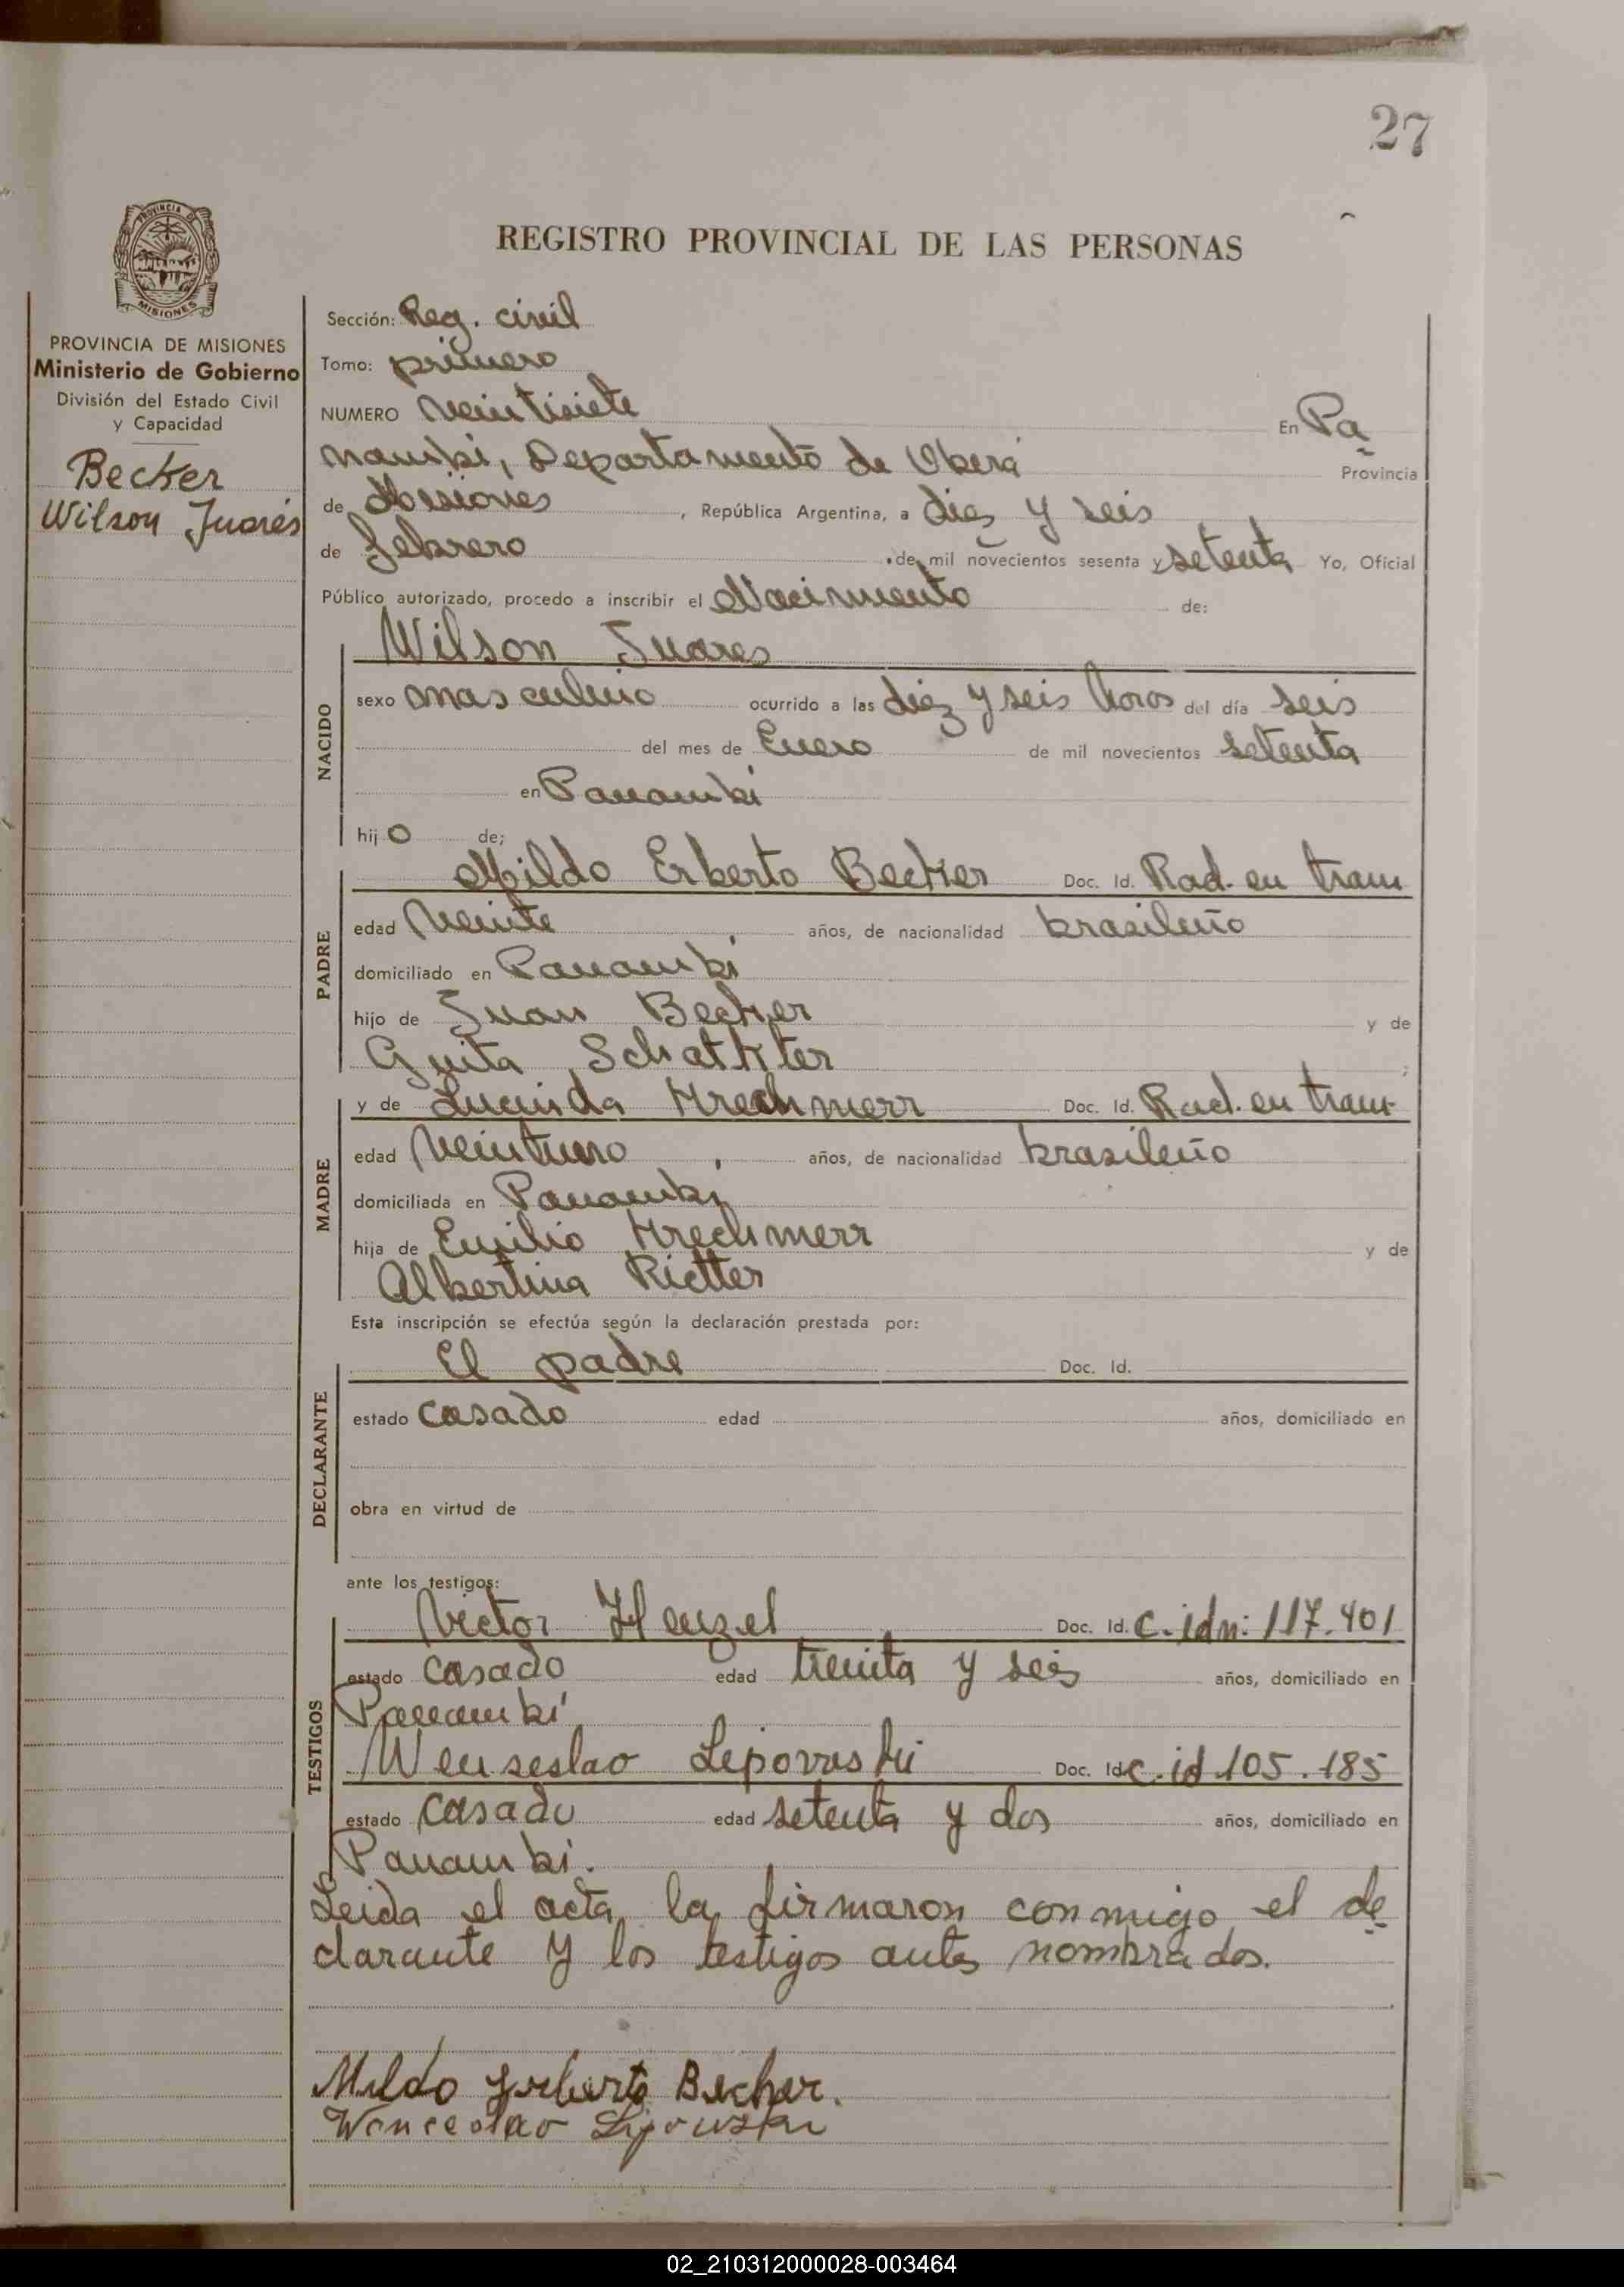 27
REGISTRO PROVINCIAL DE LAS PERSONAS
PROVINCIA DE
MISIONES
PROVINCIA DE MISIONES
Ministerio de Gobierno
División del Estado Civil
y Capacidad
Becker
Wilson Juarés
Sección: Reg. civil
Tomo: primero
NUMERO veintisiete En Pa
nambi, Departamento de Oberá Provincia
de Misiones, República Argentina, a diez y seis
de febrero de mil novecientos sesenta y setenta Yo, Oficial
Público autorizado, procedo a inscribir el Nacimiento de:
NACIDO
Wilson Juares
sexo masculino ocurrido a las diez y seis horas del día seis
del mes de Enero de mil novecientos setenta
en Panambi
hijo de;
PADRE
Mildo Erberto Becker Doc. Id. Rad. en tram
edad veinte años, de nacionalidad brasileño
domiciliado en Panambi
hijo de Juan Becker y de
Guita Schatkter;
MADRE
y de Lucinda Krechmerr Doc. Id. Rad. en tram
edad veintiuno años, de nacionalidad brasileño
domiciliada en Panambi
hija de Emilio Krechmerr y de
Albertina Rietter
Esta inscripción se efectúa según la declaración prestada por:
DECLARANTE
El padre Doc. Id.
estado casado edad años, domiciliado en
obra en virtud de
ante los testigos:
TESTIGOS
Victor Henzel Doc. Id. C. idn: 117.401
estado casado edad treinta y seis años, domiciliado en
Panambi
Wenseslao Lepovaski Doc. Id C. id 105.185
estado casado edad setenta y dos años, domiciliado en
Panambi.
Leida el acta la firmaron conmigo el de
clarante y los testigos antes nombrados.
Mildo Erberto Becker.
Wenceslao Lipowski
02_210312000028-003464